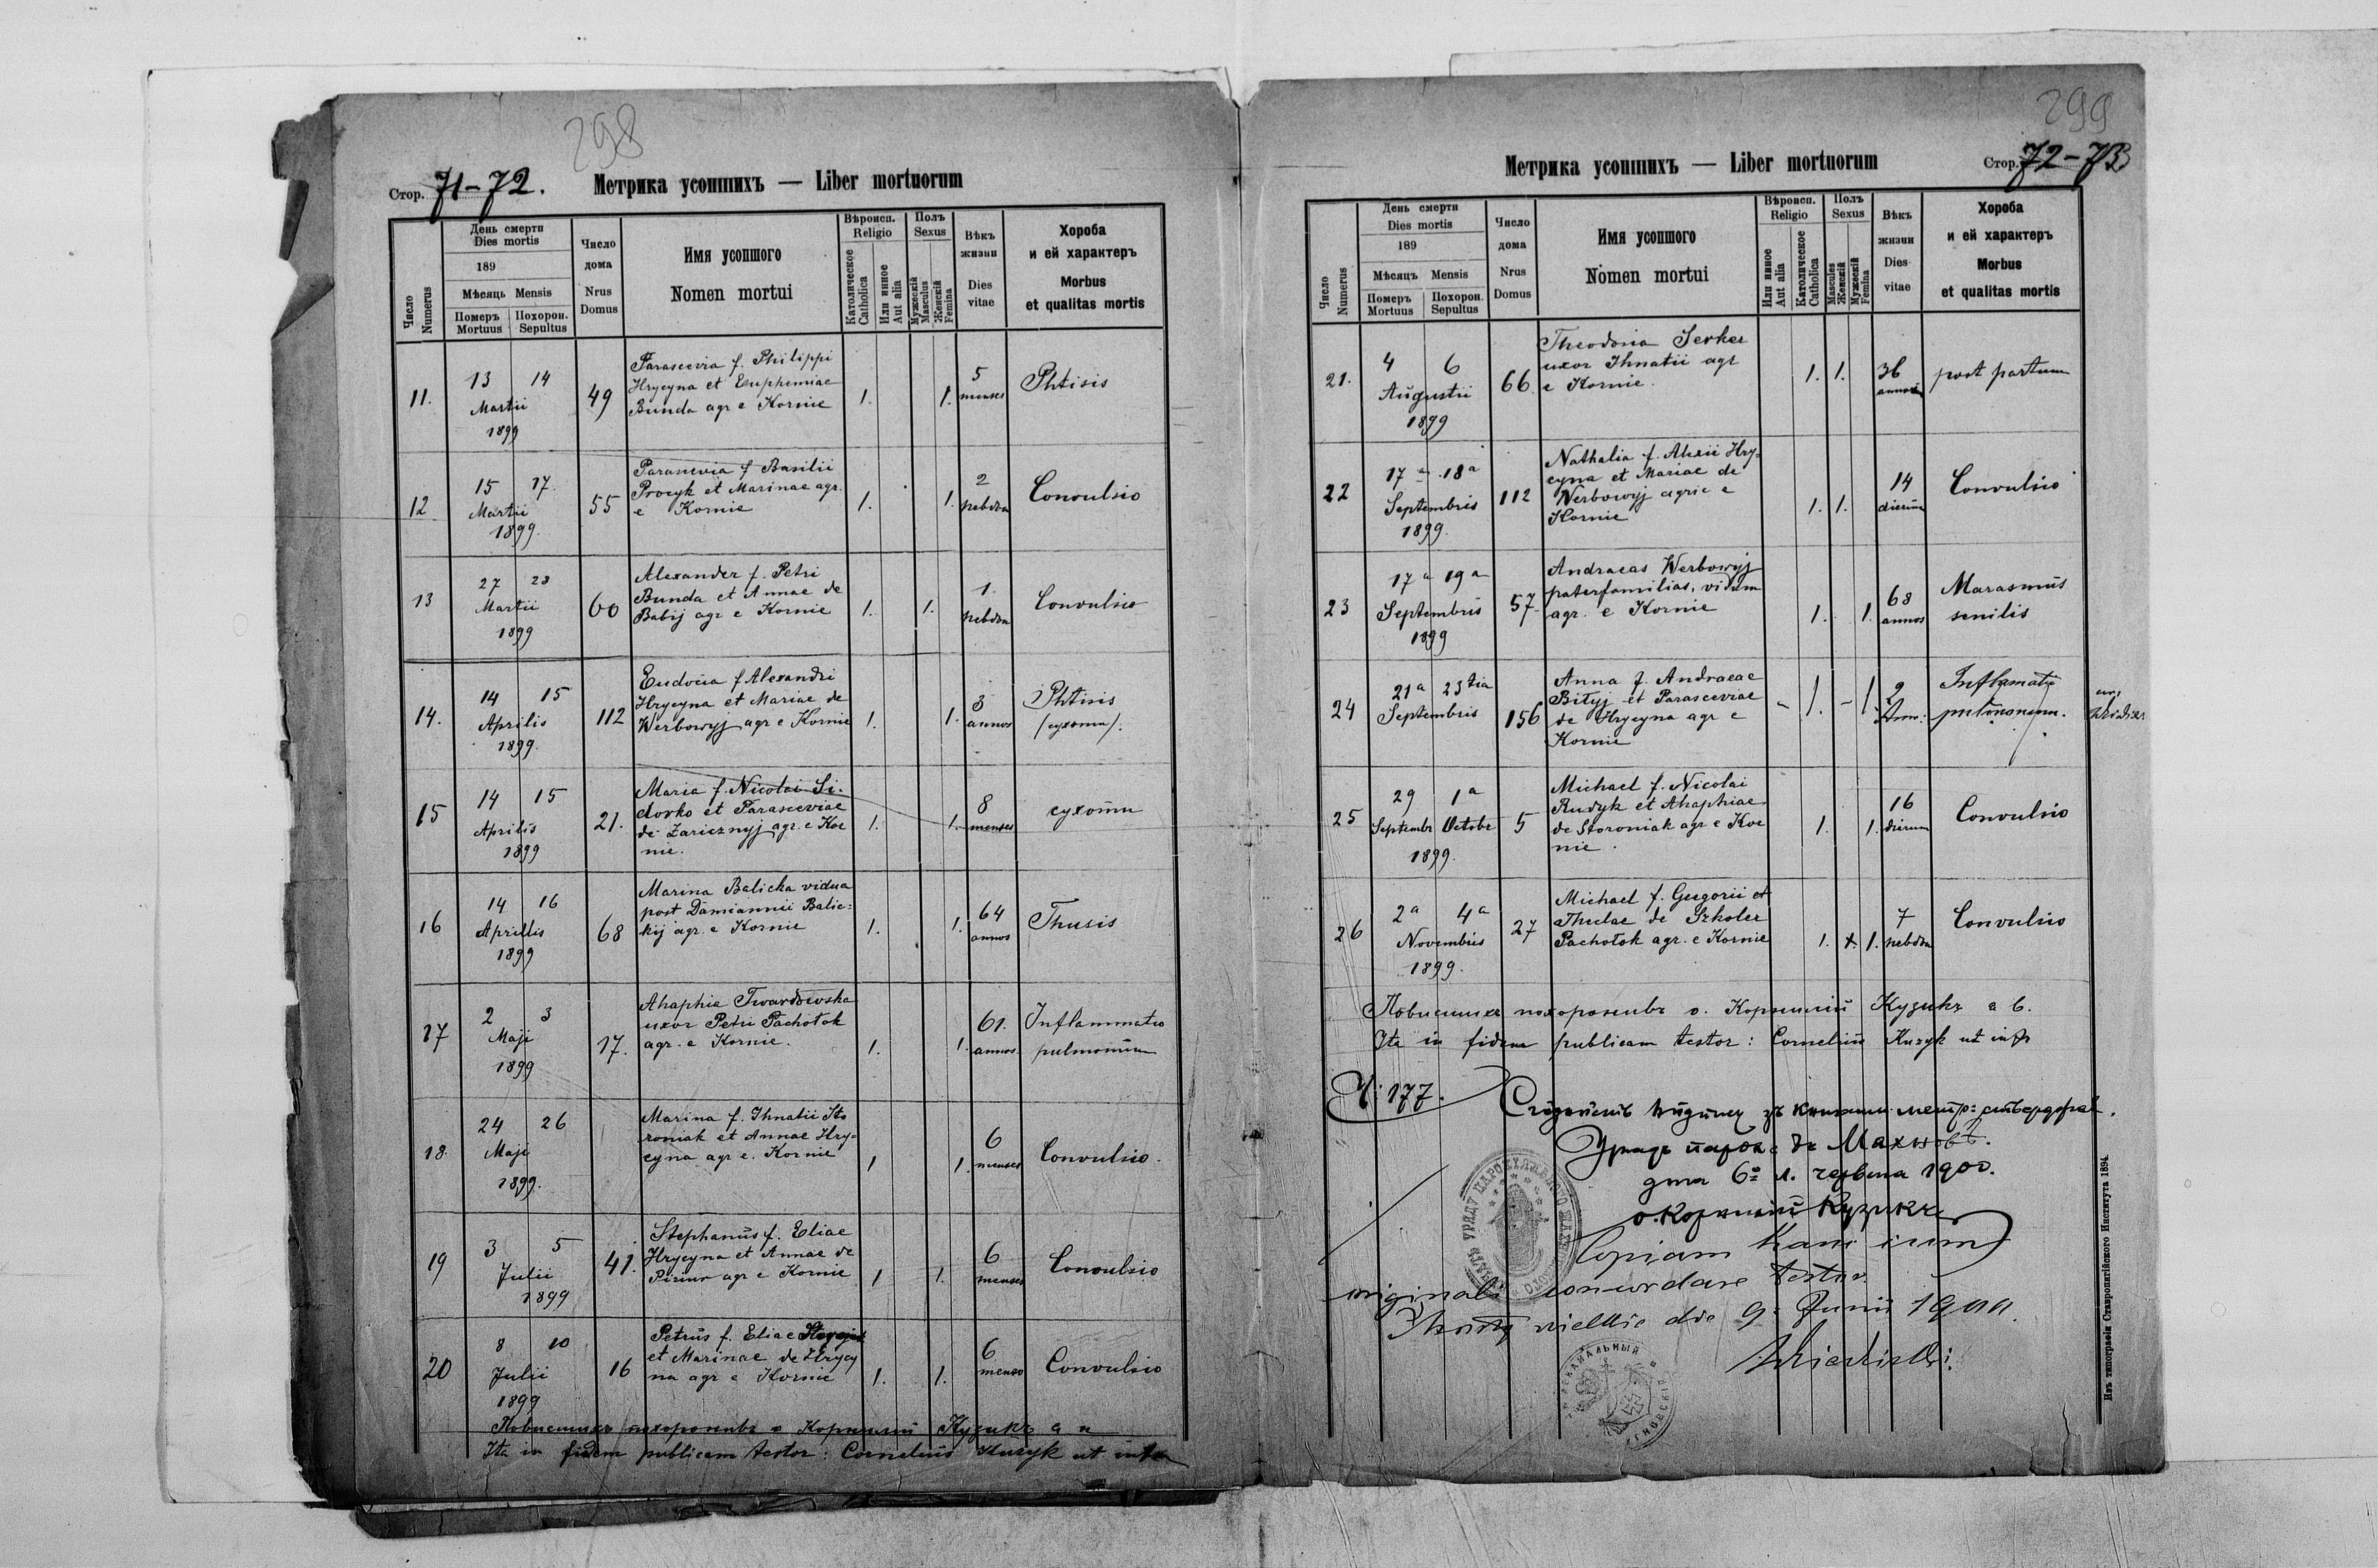 298
Стор. 71-72. Метрика усопшихъ — Liber mortuorum
Число Numerus
День смерти
Dies mortis
189
Мѣсяць Mensis
Померъ Похорон.
Mortuus Sepultus
Число
дома
Nrus
Domus
Имя усопшого
Nomen mortui
Вѣроисп.
Religio
Католическое Catholica
Или инное Aut alia
Полъ
Sexus
Мужескій Masculus
Женскій Femina
Вѣкъ
жизни
Dies
vitae
Хороба
и ей характеръ
Morbus
et qualitas mortis
11. 13 14 Martii 1899 49
Parascevia f. Philippi
Hrycyna et Euphemiae
Bunda agr e Kornie
1. 1. 5 menses Phtisis
12 15 17. Martii 1899. 55
Parascevia f Basilii
Procyk et Marinae agr.
e Kornie
1. 1. 2 hebdom Convulsio
13 27 28 Martii 1899 60
Alexander f. Petri
Bunda et Annae de
Babij agr e Kornie
1. 1. 1. hebdom Convulsio
14. 14 15 Aprilis 1899. 112
Eudocia f Alexandri
Hrycyna et Mariae de
Werbowyj agr e Kornie
1. 1. 3 annos Phtisis
(сухоты).
15 14 15 Aprilis 1899 21.
Maria f. Nicolai Si-
dorko et Parasceviae
de Zaricznyj agr. e Kor
nie.
1. 1. 8 menses сухоты
16 14 16 Aprillis 1899 68
Marina Balicka vidua
post Damiannii Balic=
kij agr. e Kornie
1. 1. 64 annos Thusis
17 2 3 Maji 1899 17.
Ahaphia Twardowska
uxor Petri Pachołok
agr. e Kornie.
1. 1. 61. annos. Inflammatio
pulmonum
18. 24 26 Maji 1899.
Marina f. Ihnatii Sto
roniak et Annae Hry-
cyna agr e. Kornie
1 1. 6 menses Convulsio.
19 3 5 Julii 1899 41.
Stephanus f. Eliae
Hrycyna et Annae de
agr e Kornie
1 1. 6 menses Convulsio
20 8 10 Julii 1899 16
Petrus f. Eliae
et Marinae de Hrycy
na agr e Kornie
1. 1. 6 menses Convulsio
похоронивъ о Корнилій Кузикъ
Ita in fidem publicam testor: Cornelius Kuzyk ut infra
299
Метрика усопшихъ — Liber mortuorum Стор. 72-73
Число Numerus
День смерти
Dies mortis
189
Мѣсяцъ Mensis
Померъ Похорон.
Mortuus Sepultus
Число
дома
Nrus
Domus
Имя усопшого
Nomen mortui
Вѣроисп.
Religio
Или инное Aut alia
Католическое Catholica
Полъ
Sexus
Masculus Женскій
Мужескій Femina
Вѣкъ
жизни
Dies
vitae
Хороба
и ей характеръ
Morbus
et qualitas mortis
21. 4 6 Augustii 1899 66
Theodosia Serker
uxor Ihnatii agr
e Kornie.
1. 1. 36 annos post partum
22 17 a 18 a Septembris 1899. 112
Nathalia f. Alexii Hry-
cyna et Mariae de
Werbowyj agric e
Kornie
1. 1. 14 dierum Convulsio
23 17 a 19 a Septembris 1899 57
Andraeas Werbowyj
paterfamilias, viduus
agr. e Kornie
1. 1. 68 annos Marasmus
senilis
24 21 a 23 tia Septembris 156
Anna f. Andraeae
Bityj et Parasceviae
de Hrycyna agr e
Kornie
- 1. - 1. 2 Ann: Inflamatio
pulmonum.
25 29 1 a Septembr Octobr 1899. 5
Michael f. Nicolai
Rudyk et Ahaphiae
de Storoniak agr e Kor
nie.
1. 1. 16 dierum Convulsio
26 2 a 4 a Novembris 1899. 27
Michael f. Gregorii et
Theclae de Szkoler
Pachołok agr. e Kornie
1. 1. 7 hebdom Convulsio
похоронивъ о. Корнилій Кузикъ
Ita in fidem publicam testor: Cornelius Kuzyk ut infr
Ч: 177.
зъ книгами метр:
Урядъ парох: въ Махновѣ.
дня 6. червня 1900.
о. Корнилій Кузикъ
Copiam hanc cum
originali concordare testor
die 9. Junii 1900
Изъ типографіи Ставропигійского Института 1894.